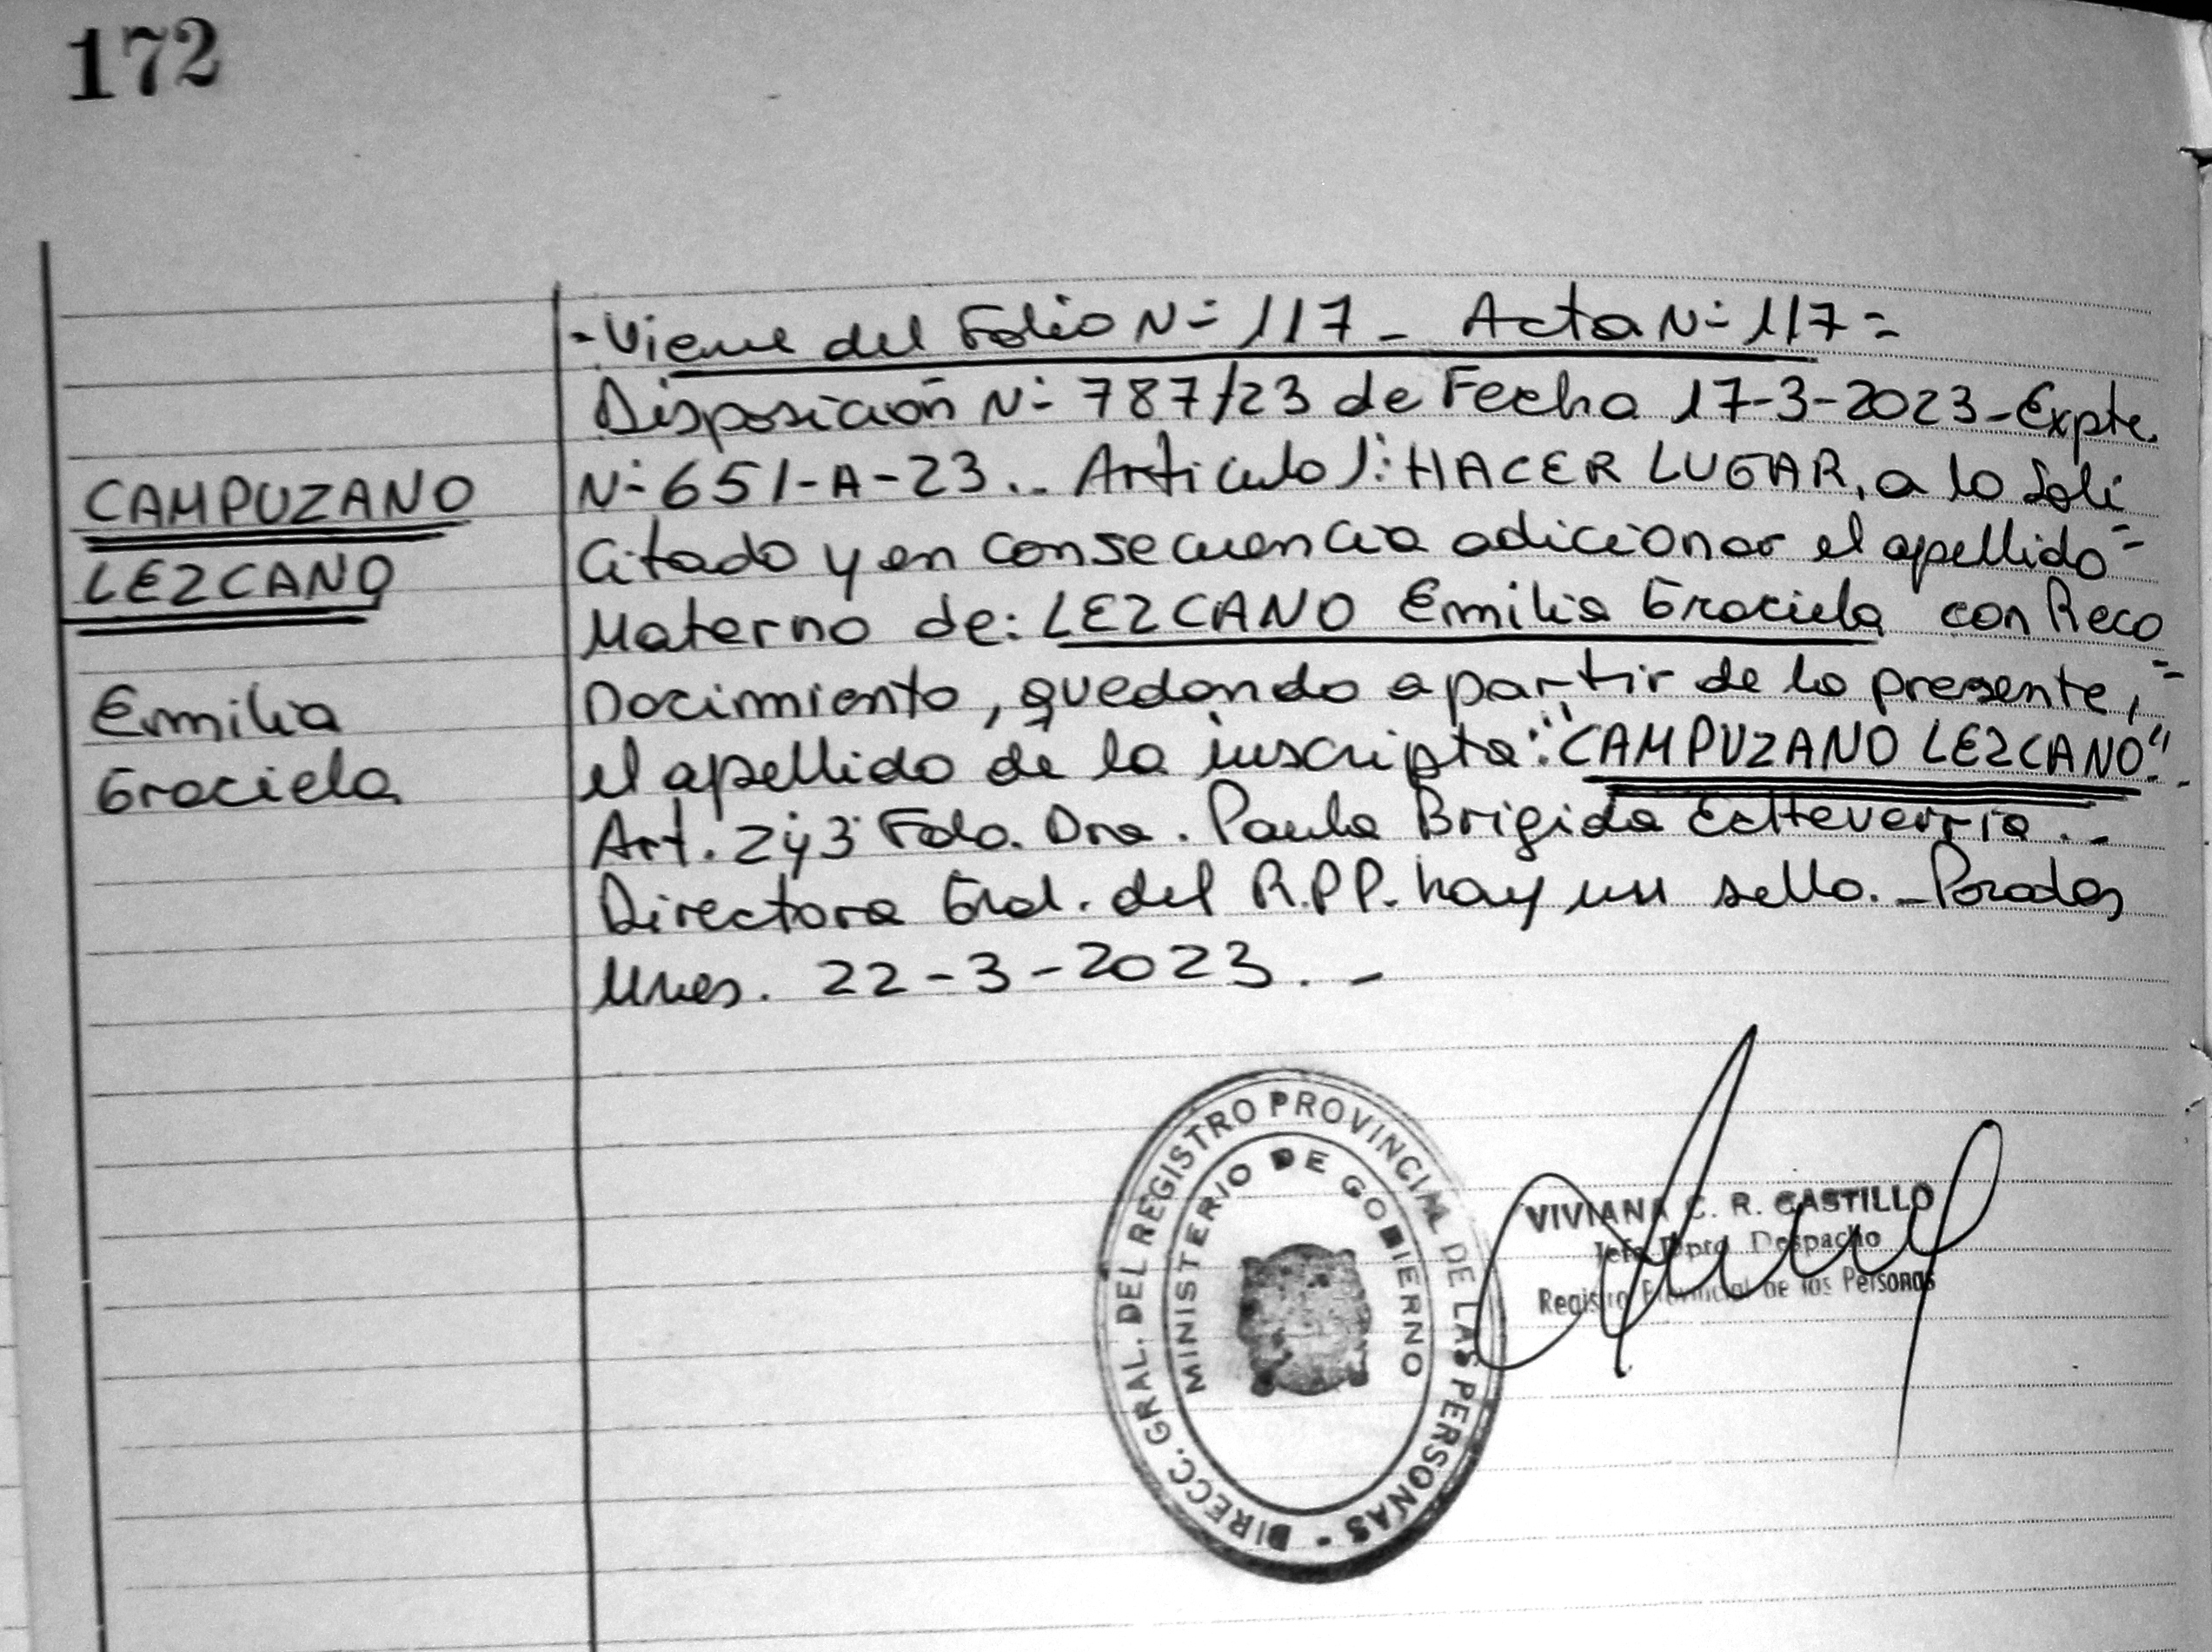 172
-Viene del Folio Nº 117 - Acta Nº 117=
Disposición Nº 787/23 de Fecha 17-3-2023-Expte.
Nº 651-A-23.- Articulo 1: HACER LUGAR, a lo Soli
citado y en consecuencia adicionar el apellido=
Materno de: LEZCANO Emilia Graciela con Reco
nocimiento, quedando a partir de la presente,=
el apellido de la inscripta: "CAMPUZANO LEZCANO".-
Art. 2y3 Fdo. Dra. Paula Brigida Echeverría.-
Directora Gral. del R.P.P. hay un sello.-Posadas
Mnes. 22-3-2023.-
CAMPUZANO
LEZCANO
Emilia
Graciela
DIRECC. GRAL. DEL REGISTRO PROVINCIAL DE LAS PERSONAS -
MINISTERIO DE GOBIERNO
VIVIANA C. R. CASTILLO
Jefa Dpto Despacho
Registro Provincial de las Personas